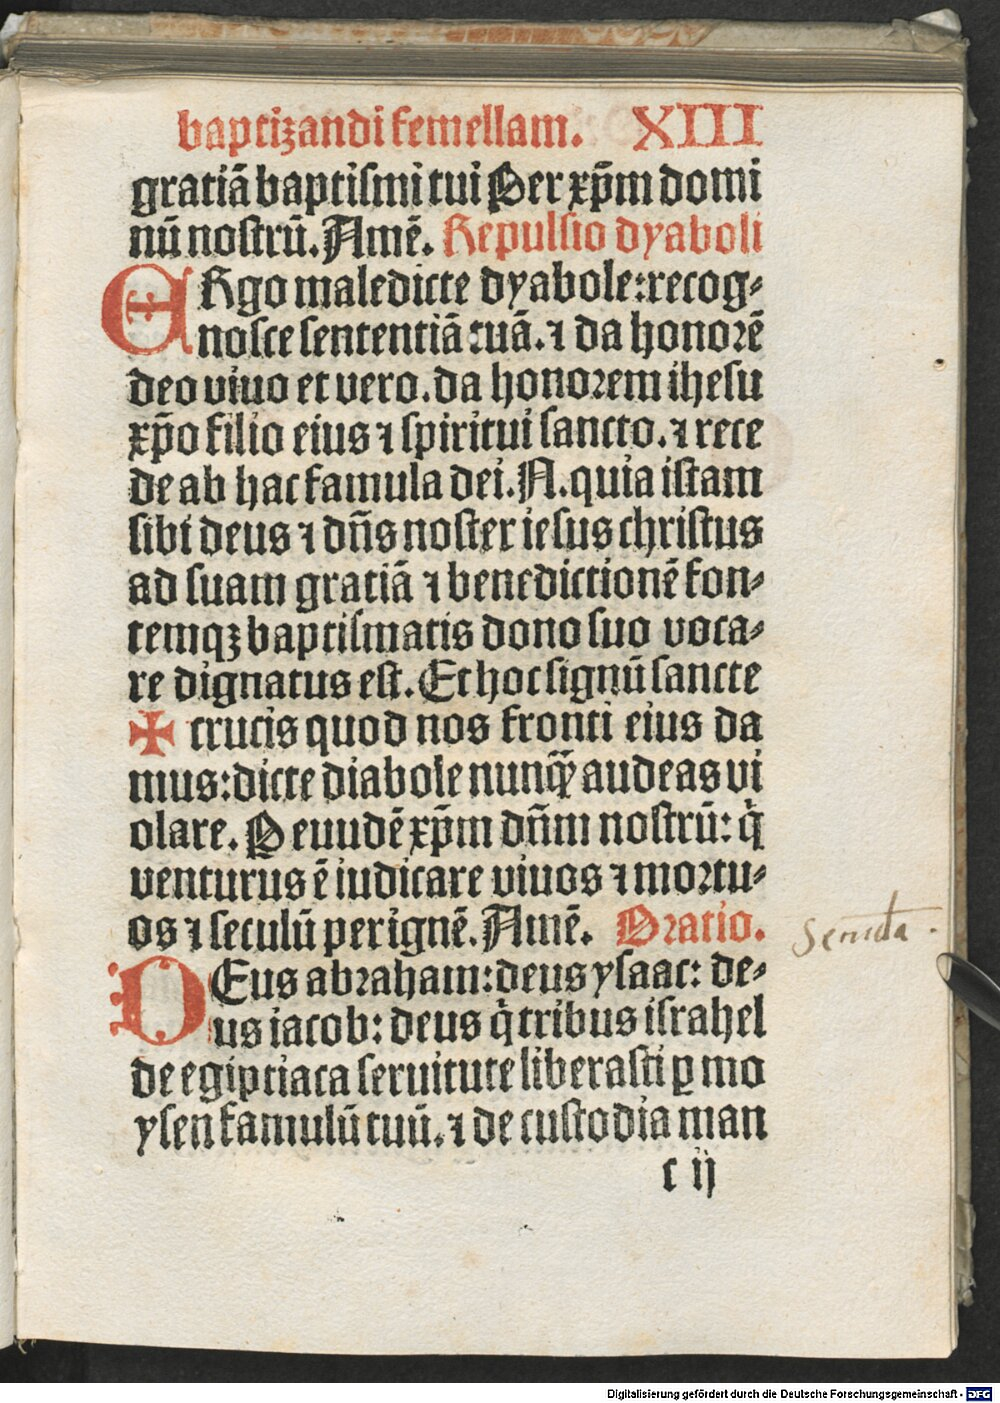 baptizandi femellam. XIII
gratiā baptiſmi tui Per xp̄m domi
nū noſtrū. Amē. Repulſio dyaboli
ERgo maledicte dyabole: recog⸗
noſce ſententiā tuā. ⁊ da honorē
deo viuo et vero. da honorem iheſu
xp̄o filio eius ⁊ ſpiritui ſancto. ⁊ rece
de ab hac famula dei. N. quia iſtam
ſibi deus ⁊ dn̄s noſter ieſus chriſtus
ad ſuam gratiā ⁊ benedictionē fon⸗
temqꝫ baptiſmatis dono ſuo voca⸗
re dignatus eſt. Et hoc ſignū ſancte
✠ crucis quod nos fronti eius da
mus: dicte diabole nunqͣ̄ audeas vi
olare. Per eundē xp̄m dn̄m noſtrū: qͥ
venturus ē iudicare viuos ⁊ moꝛtu⸗
os ⁊ ſeculū per ignē. Amē. Oꝛatio.
DEus abꝛaham: deus yſaac: de⸗
us iacob: deus qͥ tribus iſrahel
de egiptiaca ſeruitute liberaſti ꝑ mo
yſen famulū tuū. ⁊ de cuſtodia man
c ij
Digitalisierung gefördert durch die Deutsche Forschungsgemeinschaft - DFG